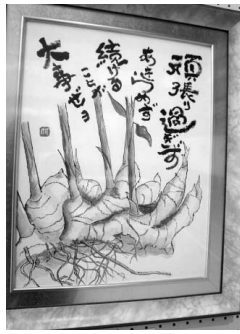 頑張り過ぎず
あきらめず
続ける
ことが
大事ぜよ